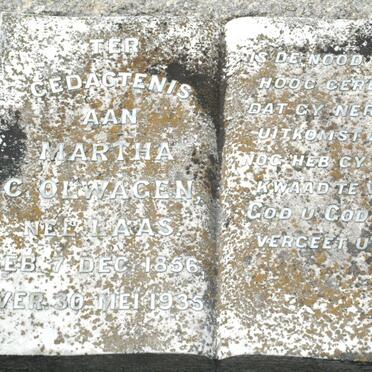 TER
GEDACTENIS
AAN
MARTHA
C. OLWAGEN,
NEE LAAS.
GEB. 7. DEC. 1856
OVER. 30. MEI 1935
IS DE NOOD
HOOG GERE
DAT GY NER
UITKOMST
NOG HEB GY
KWAAD TE V
GOD U GOD
VERGEET U